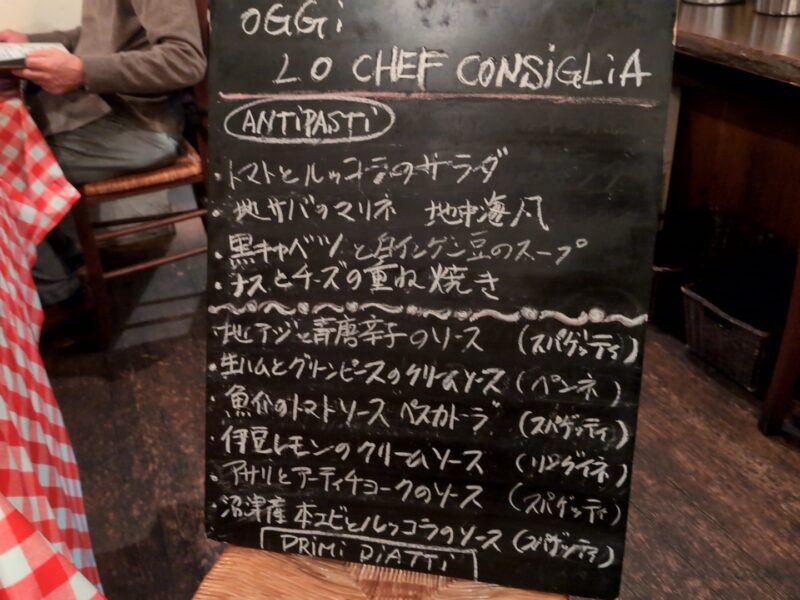 OGGi
LO CHEF CONSiGLiA
ANTiPASTi
・トマトとルッコラのサラーダ
・地サバのマリネ 地中海風
・黒キャベツと白インゲン豆のスープ
・ナスとチーズの重ね焼き
・地アジと青唐辛子のソース (スパゲッティ)
・生ハムとグリーンピースのクリームソース (ペンネ)
・魚介のトマトソース"ペスカトーラ" (スパゲッティ)
・伊豆レモンのクリームソース (リングイネ)
・アサリとアーティチョークのソース (スパゲッティ)
・沼津産本エビとルッコラのソース (スパゲッティ)
PRiMi PiATTi